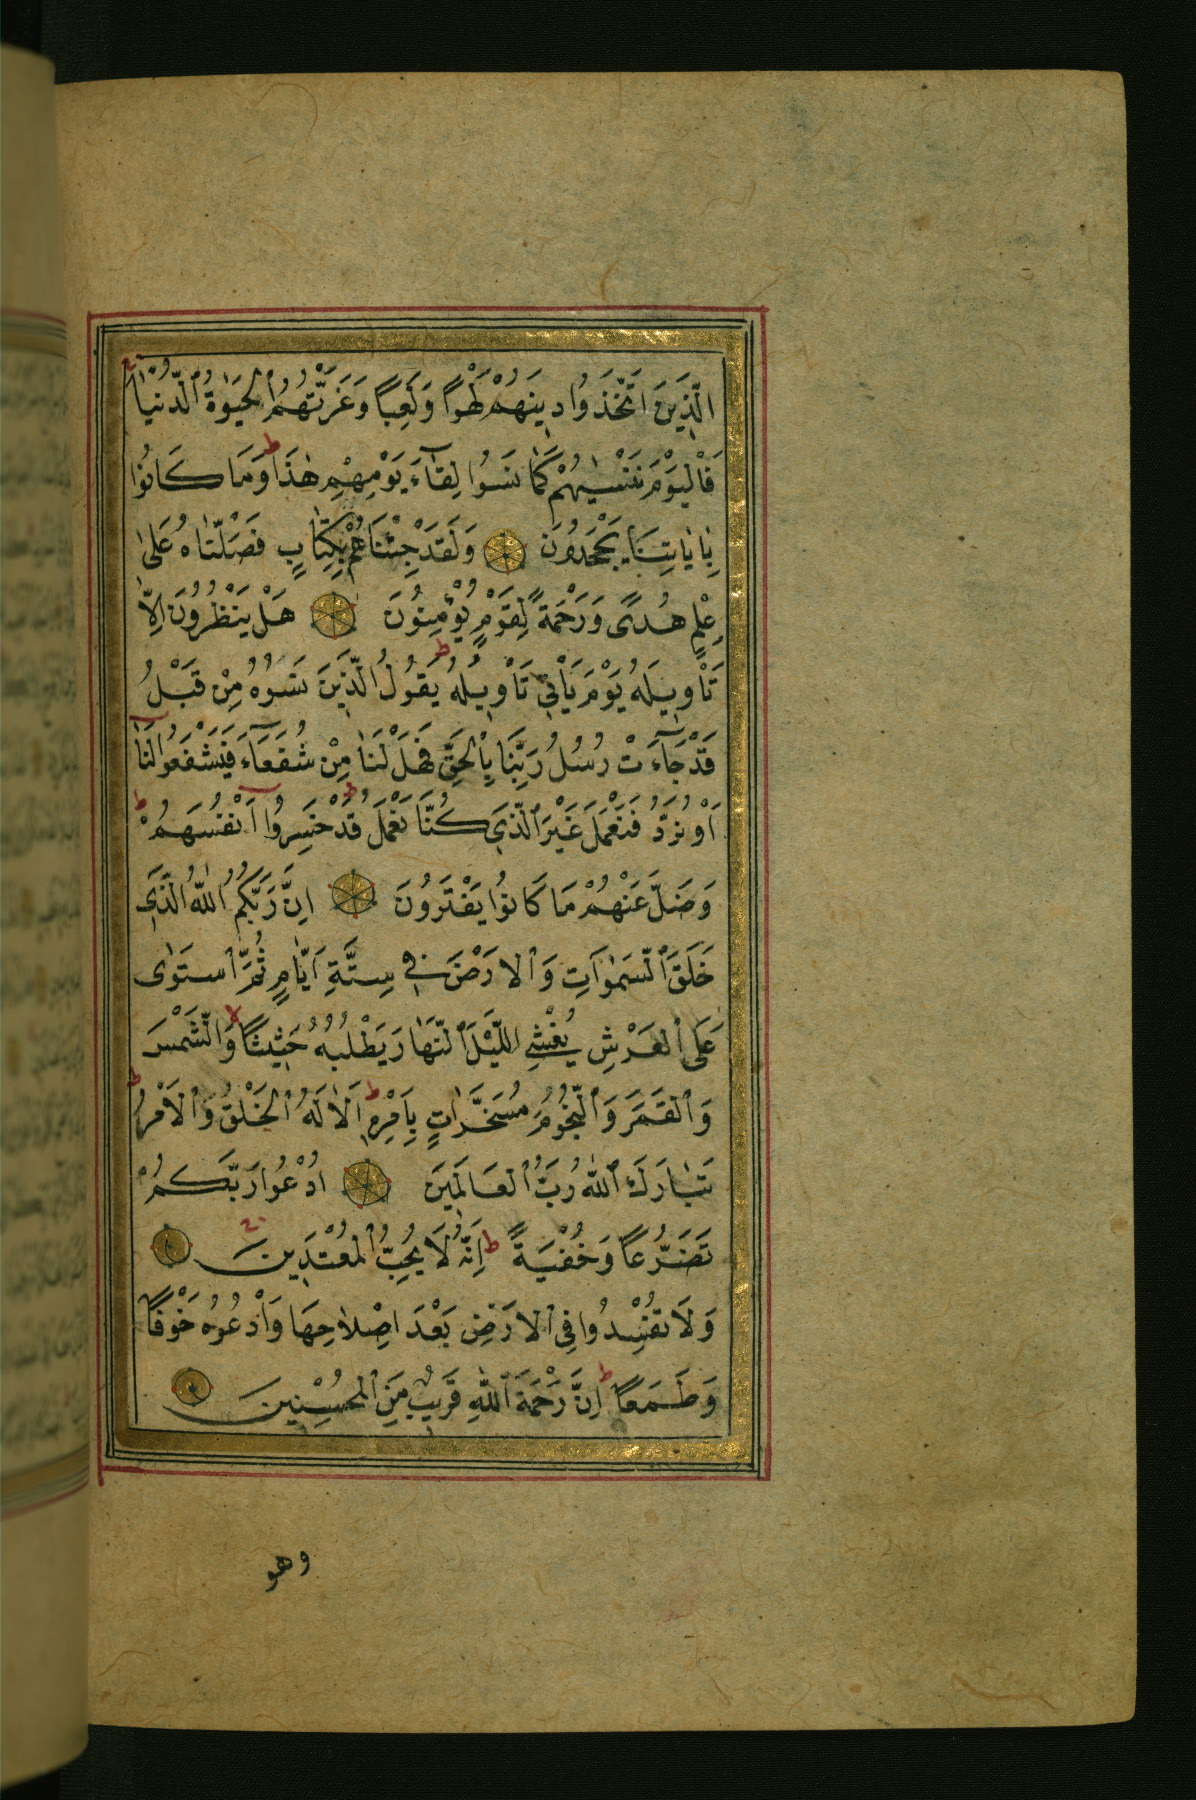 الَّذِينَ اتَّخَذُوا دِينَهُمْ لَهْوًا وَلَعِبًا وَغَرَّتْهُمُ الْحَيٰوةُ الدُّنْيَا
فَالْيَوْمَ نَنْسٰيهُمْ كَمَا نَسُوا لِقَآءَ يَوْمِهِمْ هٰذَا ط وَمَا كَانُوا
بِاٰيَاتِنَا يَجْحَدُونَ وَلَقَدْ جِئْنَاهُمْ بِكِتَابٍ فَصَّلْنَاهُ عَلٰى
عِلْمٍ هُدًى وَرَحْمَةً لِقَوْمٍ يُؤْمِنُونَ هَلْ يَنْظُرُونَ اِلَّا
تَاْوِيلَهُ يَوْمَ يَاْتِي تَاْوِيلُهُ ط يَقُولُ الَّذِينَ نَسُوهُ مِنْ قَبْلُ
قَدْ جَآءَتْ رُسُلُ رَبِّنَا بِالْحَقِّ فَهَلْ لَنَا مِنْ شُفَعَآءَ فَيَشْفَعُوا لَنَا
اَوْ نُرَدُّ فَنَعْمَلَ غَيْرَ الَّذِي كُنَّا نَعْمَلُ ط قَدْ خَسِرُوا اَنْفُسَهُمْ ط
وَضَلَّ عَنْهُمْ مَا كَانُوا يَفْتَرُونَ اِنَّ رَبَّكُمُ اللّٰهُ الَّذِي
خَلَقَ السَّمٰوَاتِ وَالْارَضَ فِي سِتَّةِ اَيَّامٍ ثُمَّ اسْتَوٰى
عَلَى الْعَرْشِ يُغْشِي اللَّيْلَ النَّهَارَ يَطْلُبُهُ حَثِيثًا لا وَالشَّمْسَ
وَالْقَمَرَ وَالنُّجُومَ مُسَخَّرَاتٍ بِاَمْرِهِ ط اَلَا لَهُ الْخَلْقُ وَالْاَمْرُ ط
تَبَارَكَ اللّٰهُ رَبُّ الْعَالَمِينَ اُدْعُوا رَبَّكُمْ
تَضَرُّعًا وَخُفْيَةً ط اِنَّهُ لَا يُحِبُّ الْمُعْتَدِينَ
وَلَا تُفْسِدُوا فِي الْارَضِ بَعْدَ اِصْلَاحِهَا وَادْعُوهُ خَوْفًا
وَطَمَعًا ط اِنَّ رَحْمَةَ اللّٰهِ قَرِيبٌ مِنَ الْمُحْسِنِينَ
وهو